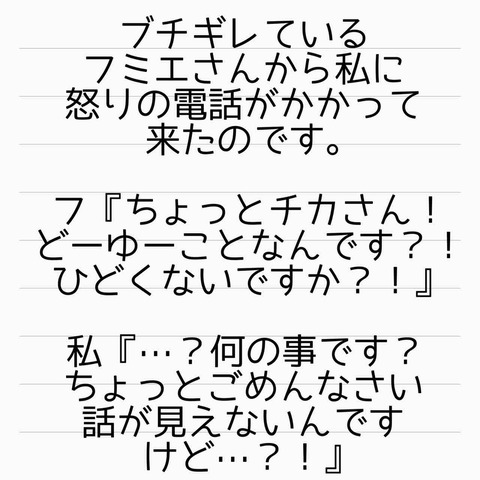 ブチギレている
フミエさんから私に
怒りの電話がかかって
来たのです。
フ『ちょっとチカさん！
どーゆーことなんです？！
ひどくないですか？！』
私『…？何の事です？
ちょっとごめんなさい
話が見えないんです
けど…？！』